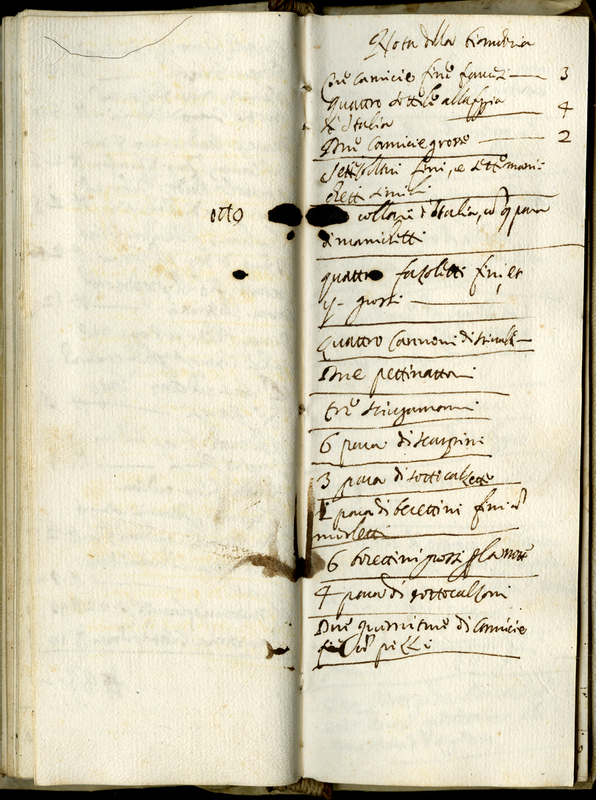 otto
Nota della biancheria
Tre camicie fine 3
quattro di tela
d'Italia 4
Due camicie grosse 2
Sette collari fini, e sette mani-
chetti simili
collari d'Italia, co' para
di manichetti
quattro fazoletti fini, et
grossi
quattro Cannoni di
Due pettinatori
tre sciugamani
6 para di scarpini
3 para di sotticalzette
para di berettini fini
merletti
6 berettini grossi p la notte
4 para di sottocalzoni
Due guarniture di camicie
pizzi